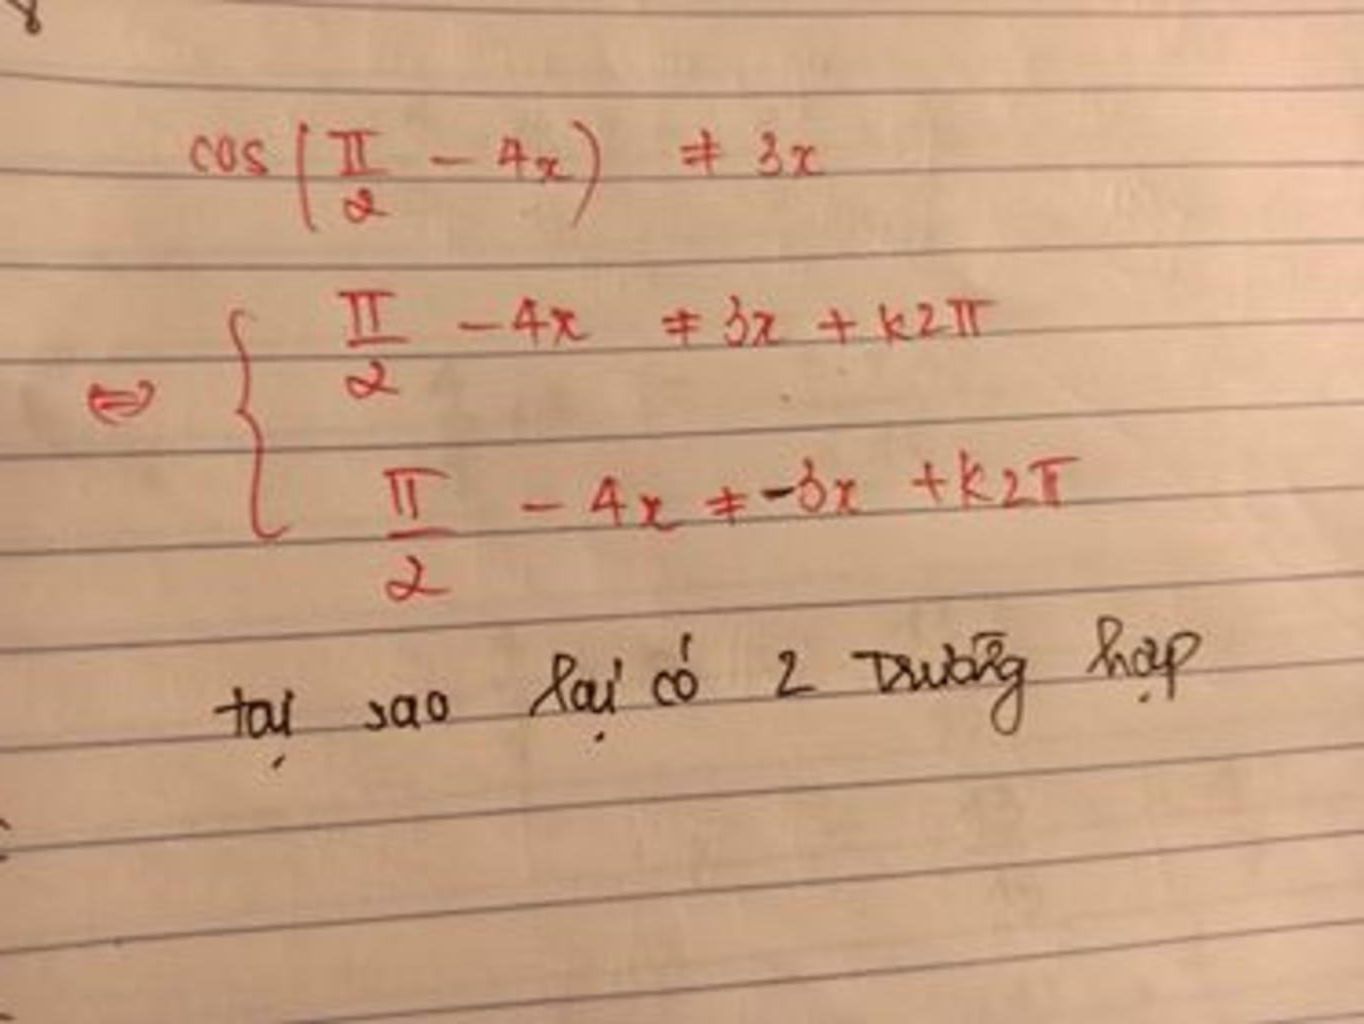 cos(π/2 - 4x) ≠ 3x
⇔ { π/2 - 4x ≠ 3x + k2π
π/2 - 4x ≠ -3x + k2π
tại sao lại có 2 trường hợp